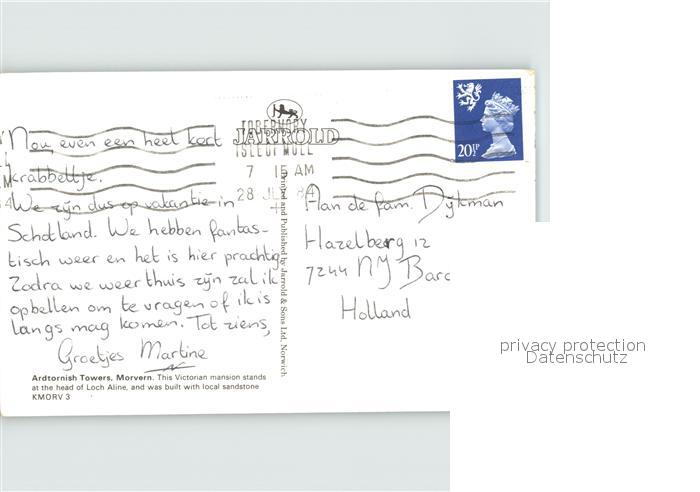 TOBERMORY
JARROLD
ISLE OF MULL
7 15 AM
28 JLY 84
20½P
Nou even een heel kort
krabbeltje.
We zijn dus op vakantie in
Schotland. We hebben fantas-
tisch weer en het is hier prachtig
Zodra we weer thuis zijn zal ik
opbellen om te vragen of ik is
langs mag komen. Tot ziens,
Groetjes Martine
Ardtornish Towers, Morvern. This Victorian mansion stands
at the head of Loch Aline, and was built with local sandstone
KMORV 3
Printed and Published by Jarrold & Sons Ltd, Norwich.
Aan de fam. Dijkman
Hazelberg 12
7244 NJ Barc
Holland
privacy protection
Datenschutz